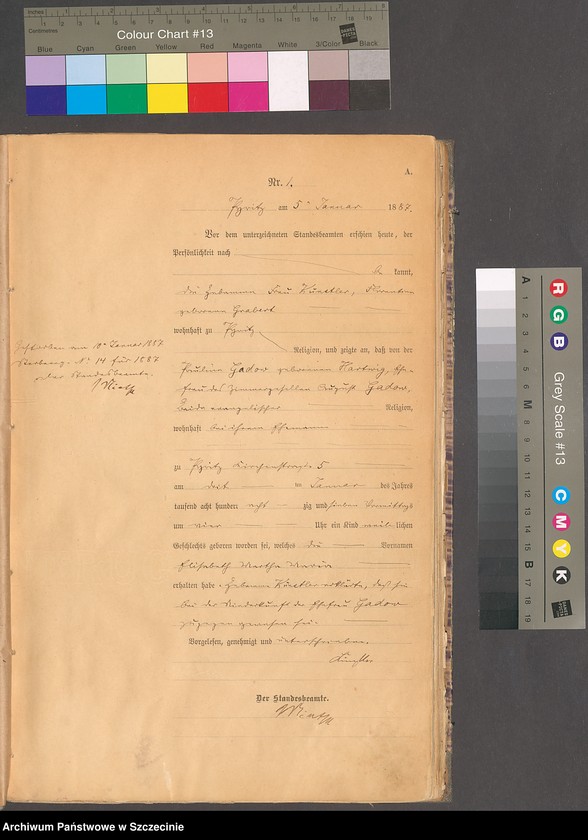 Colour Chart #13
Blue Cyan Green Yellow Red Magenta White 3/Color Black
A.
Nr. 1.
Pyritz am 5ten Januar 1887.
Vor dem unterzeichneten Standesbeamten erschien heute, der
Persönlichkeit nach
be kannt,
die Hebamme Frau Künstler, Florentine
geborene Grabert
wohnhaft zu Pyritz
Religion, und zeigte an, daß von der
Pauline Gadow geborenen Hartwig, Ehe-
frau des Zimmergesellen August Gadow,
Beide evangelischer Religion,
wohnhaft bei ihrem Ehemann
zu Pyritz Kirchenstraße 5
am dritten Januar des Jahres
tausend acht hundert acht zig und sieben Vormittags
um vier Uhr ein Kind weib lichen
Geschlechts geboren worden sei, welches die Vornamen
Elisabeth Martha Maria
erhalten habe. Hebamme Künstler erklärte, daß sie
bei der Niederkunft der Ehefrau Gadow
zugegen gewesen sei.
Vorgelesen, genehmigt und unterschrieben.
Künstler
Der Standesbeamte.
Gestorben am 10ten Januar 1887
Sterbereg. No 14 für 1887
Der Standesbeamte.
Grey Scale #13
R G B
C M Y K
A 1 2 3 4 5 6 M 8 9 10 11 12 13 14 15 B 17 18 19
Archiwum Państwowe w Szczecinie